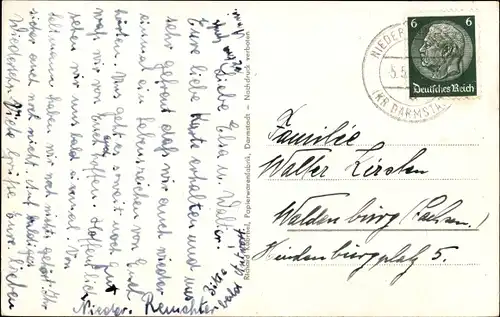 6 6
Deutsches Reich
NIEDER
5.5.
(KR. DARMSTA
Familie
Walter Kirsten
Waldenburg (Sachsen)
Hindenburgplatz 5.
Papierwarenfabrik, Darmstadt — Nachdruck verboten
Liebe Elsa u. Walter!
Eure liebe Karte erhalten und uns
sehr gefreut daß wir auch wieder
einmal ein Lebenszeichen von Euch
hörten. Uns geht es soweit noch gut
was wir von Euch auch hoffen. Hoffentlich
sehen wir uns bald einmal. Von
haben wir noch nichts gehört. Ihr
sicher auch noch nicht
Wiedersehn. Viele Grüße Eure Lieben
Nieder-
Bitte
bald Antwort